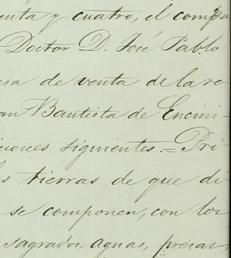 enta y cuatro, el compa
Doctor D. José Pablo
sa de venta de la re
an Bautista de Encini-
ciones siguientes.= Pri-
s tierras de que di
se componen, con los
sagrados, aguas, presas,